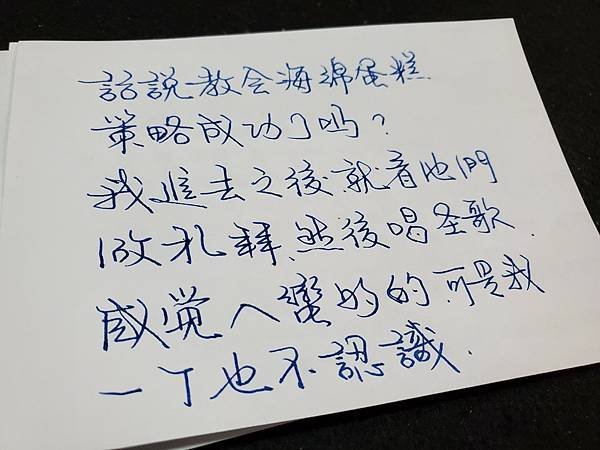 話說教会海綿蛋糕
策略成功了吗？
我進去之後就看他們
做礼拜、然後唱圣歌.
感觉人蠻多的 可是我
一丁也不認識.